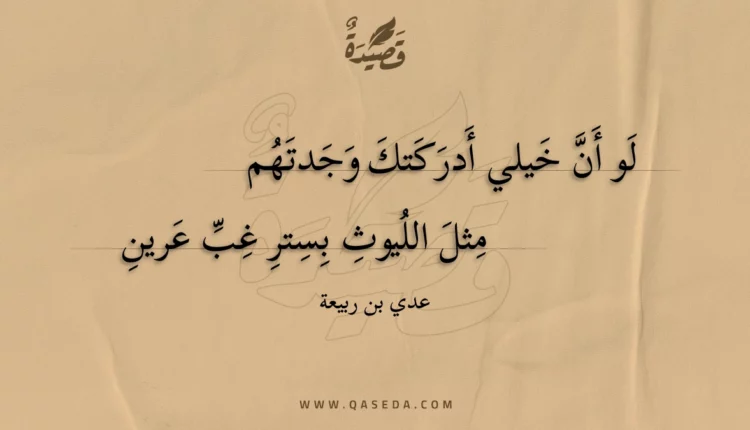 قَصِيدَةٌ
لَو أَنَّ خَيلي أَدرَكَتكَ وَجَدتَهُم
مِثلَ اللُيوثِ بِسِترِ غِبِّ عَرينِ
عدي بن ربيعة
WWW.QASEDA.COM